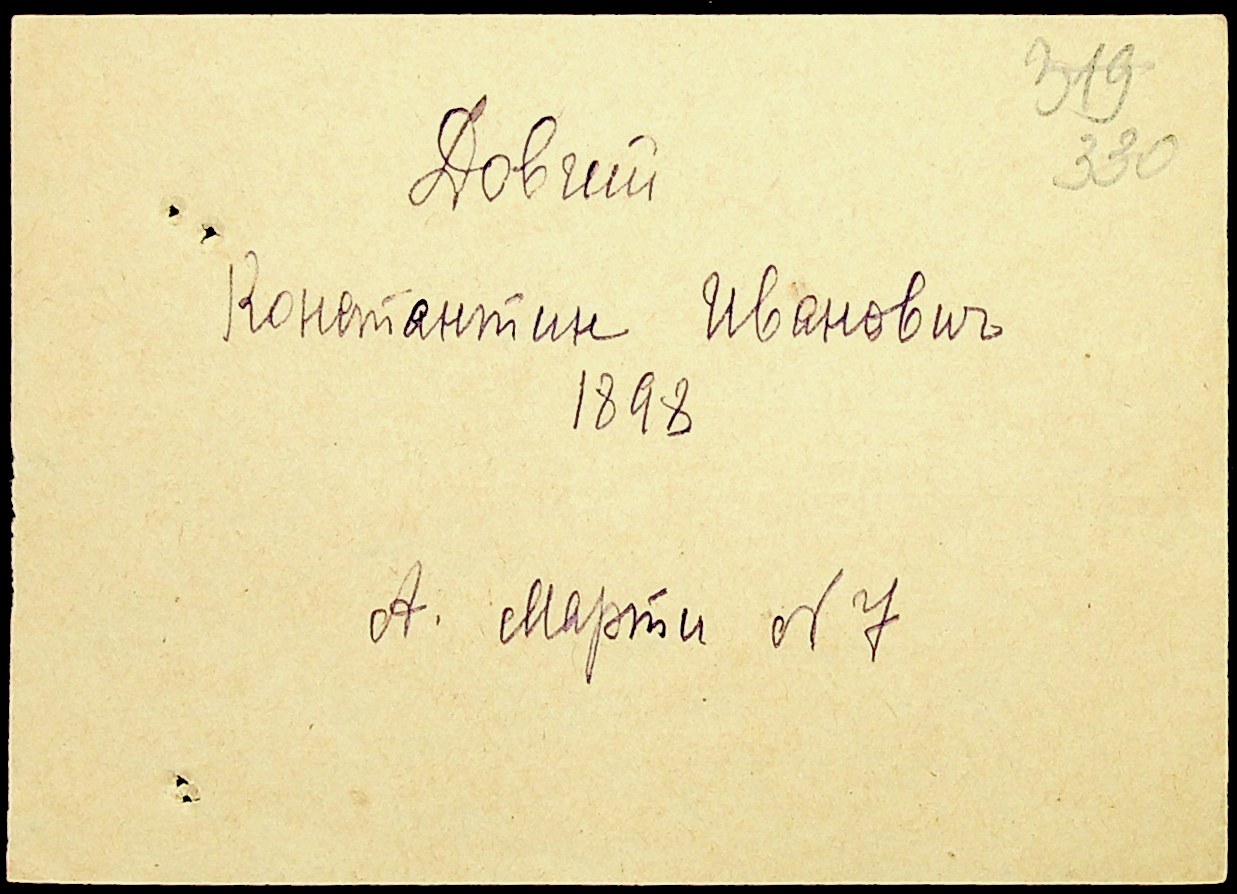 319
330
Довгий
Константин Иванович
1898
А. Марти № 7